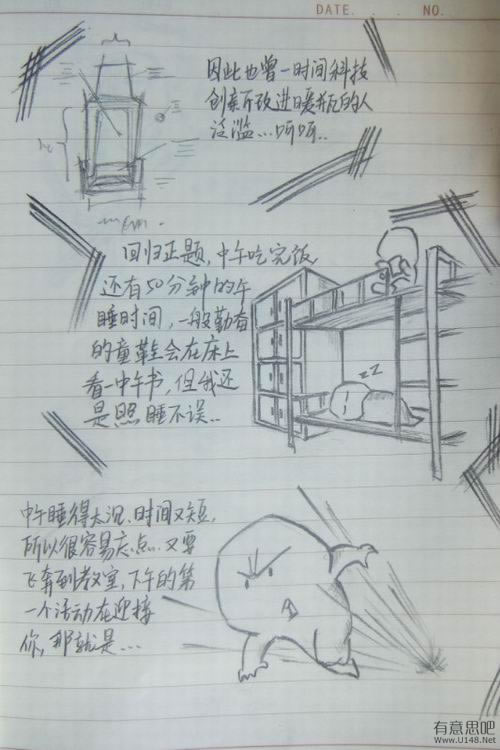 DATE. . . NO.
因此也曾一时间科技
创新改进暖瓶的人
泛滥...呵呵..
回归正题,中午吃完饭
还有50分钟的午
睡时间,一般勤奋
的童鞋会在床上
看一中午书,但我还
是照睡不误..
ZZ
中午睡得太沉,时间又短,
所以很容易忘点...又要
飞奔到教室,下午的第
一个活动在迎接
你,那就是...
有意思吧
Www.U148.Net